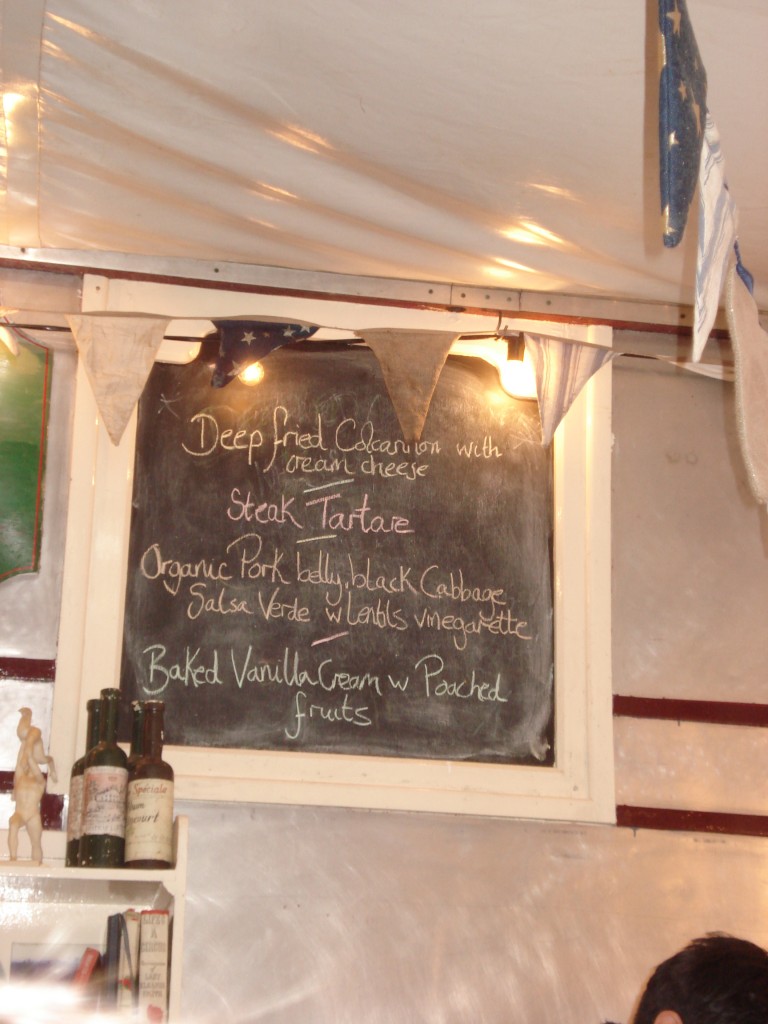 Deep fried Colcannon with
cream cheese
Steak Tartare
Organic Pork belly, black Cabbage
Salsa Verde w Lentils vinegarette
Baked Vanilla Cream w Poached
fruits
Spéciale